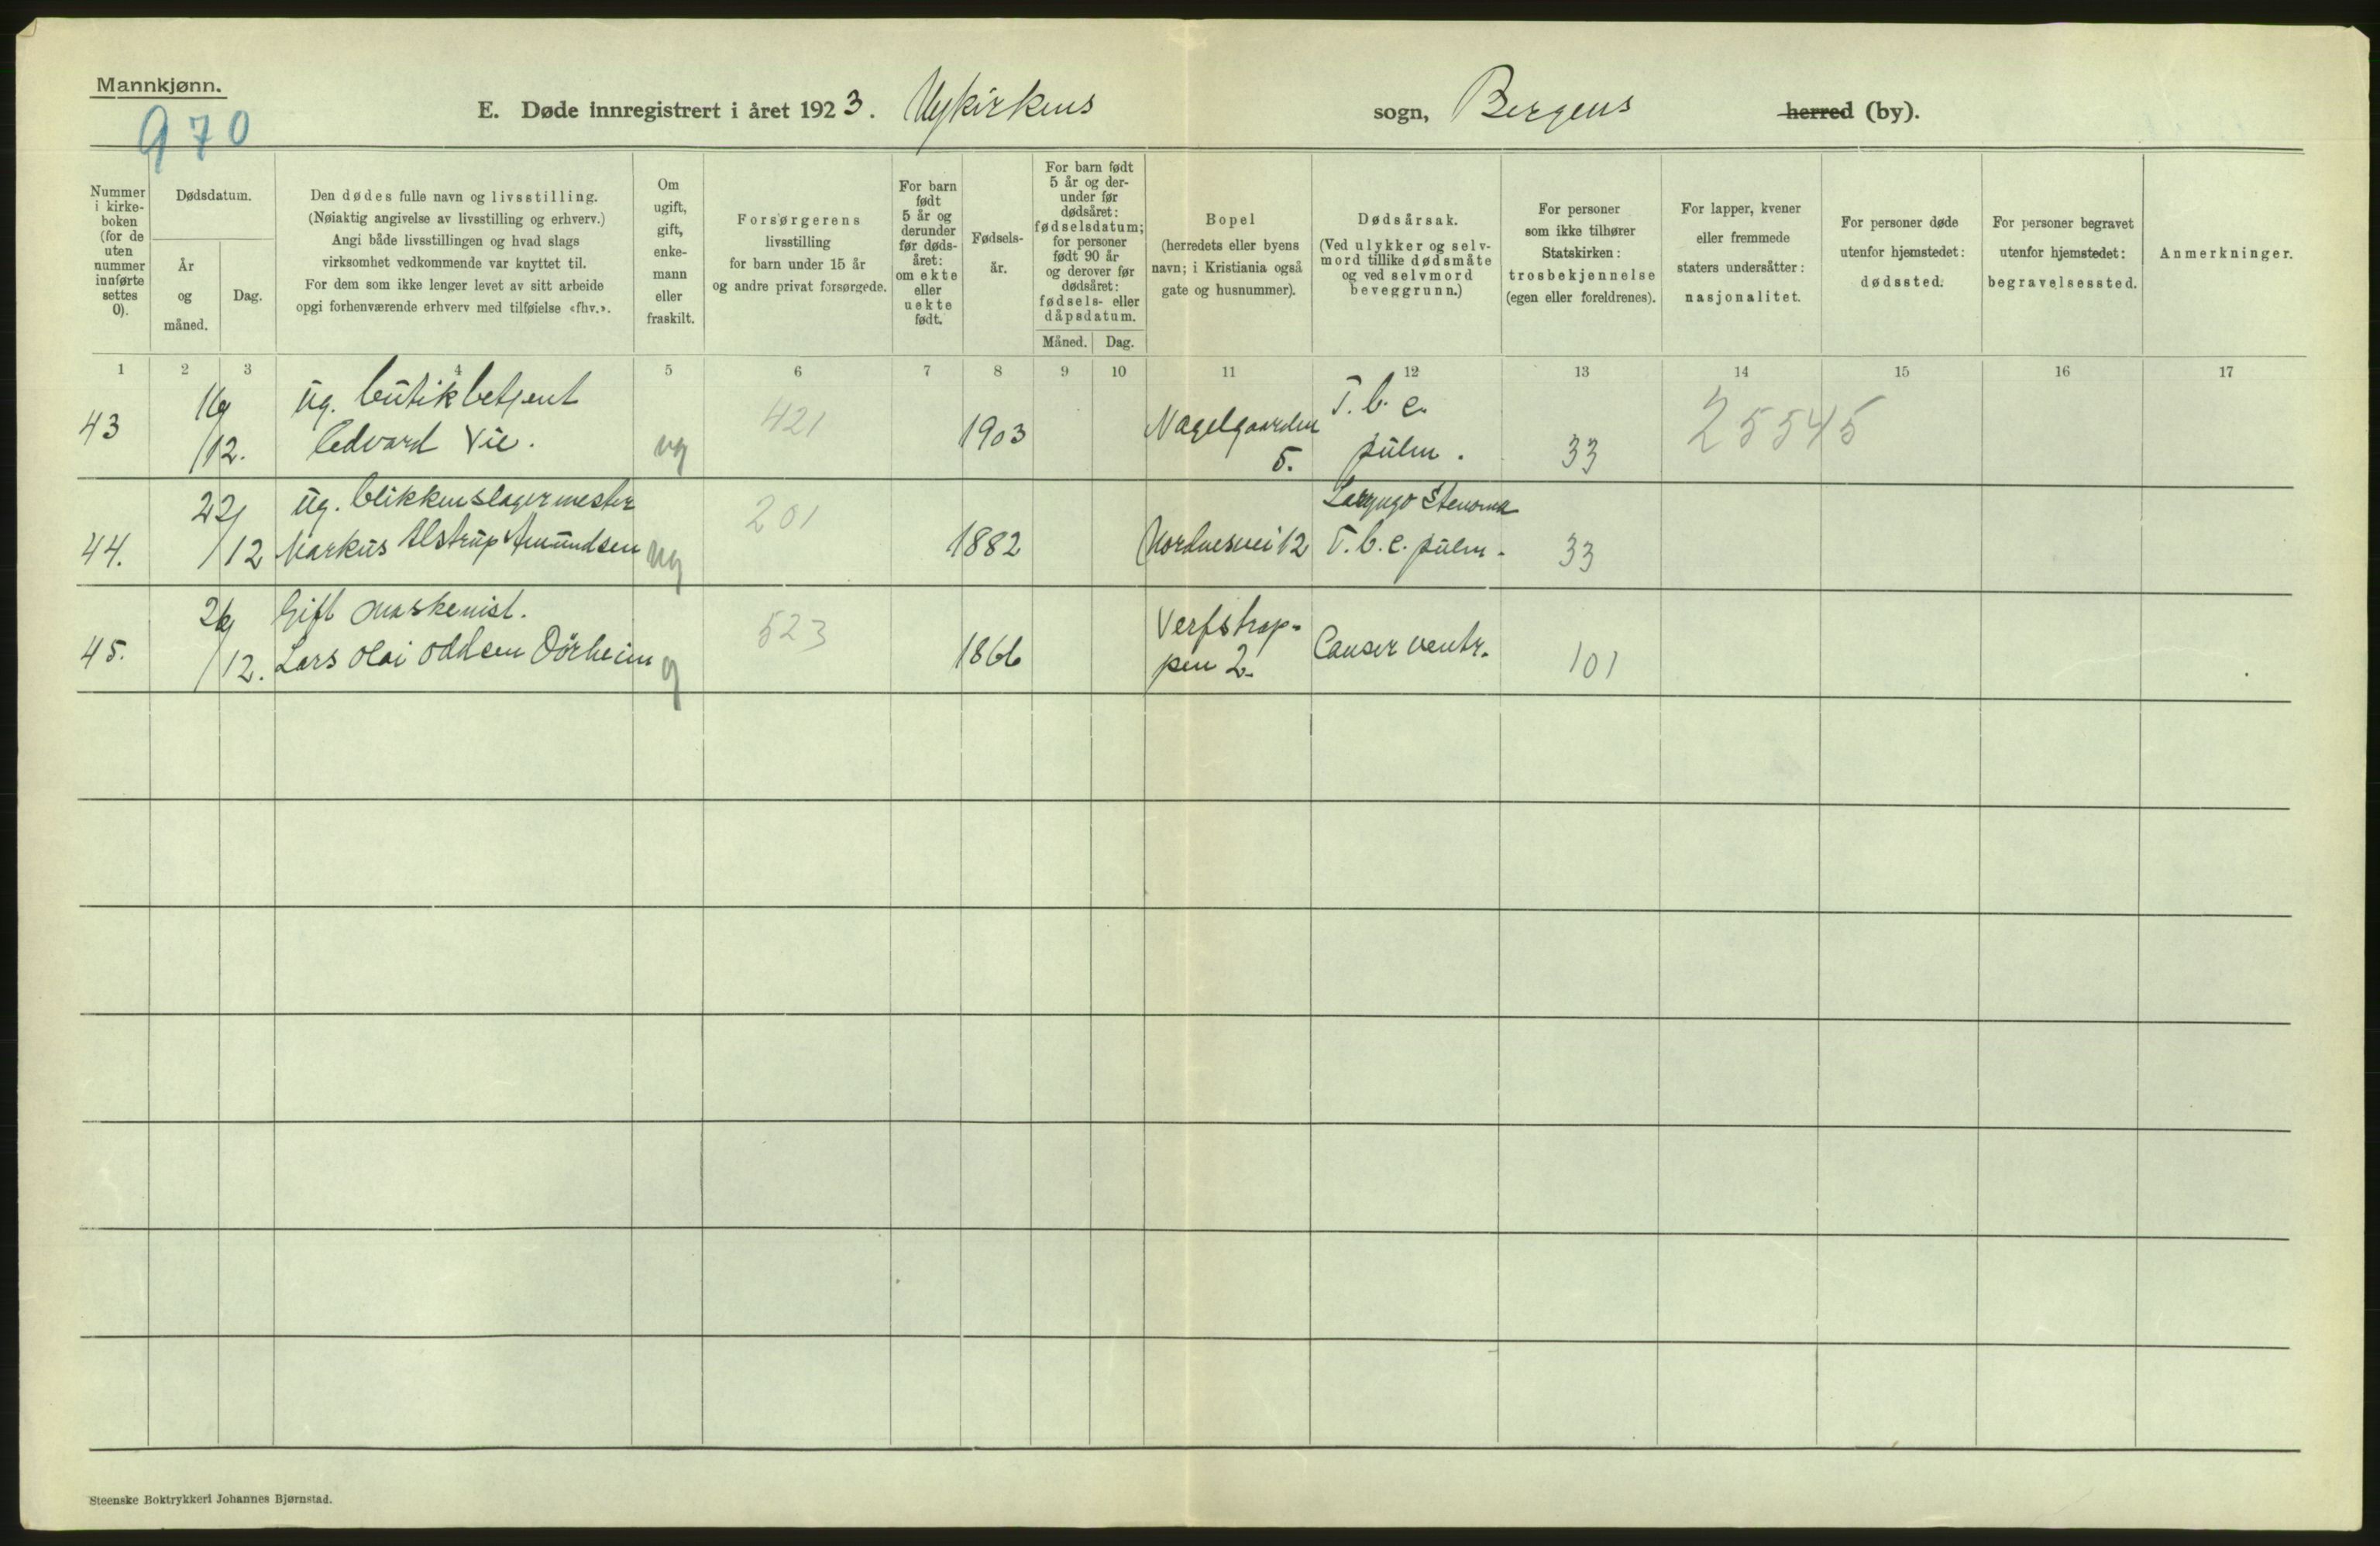 Mannkjønn.
970
E. Døde innregistrert i året 1923. Nykirkens sogn, Bergens herred (by).
Nummer i kirke-boken (for de uten nummer innførte settes 0).
Dødsdatum.
År og måned.
Dag.
Den dødes fulle navn og livsstilling.
(Nøiaktig angivelse av livsstilling og erhverv.)
Angi både livsstillingen og hvad slags
virksomhet vedkommende var knyttet til.
For dem som ikke lenger levet av sitt arbeide
opgi forhenværende erhverv med tilføielse «fhv.».
Om ugift, gift, enke-mann eller fraskilt.
Forsørgerens
livsstilling
for barn under 15 år
og andre privat forsørgede.
For barn født 5 år og derunder før døds-året: om ekte eller uekte født.
Fødsels-år.
For barn født 5 år og der-under før dødsåret: fødselsdatum; for personer født 90 år og derover før dødsåret: fødsels- eller dåpsdatum.
Måned.
Dag.
Bopel
(herredets eller byens
navn; i Kristiania også
gate og husnummer).
Dødsårsak.
(Ved ulykker og selv-
mord tillike dødsmåte
og ved selvmord
beveggrunn.)
For personer
som ikke tilhører
Statskirken:
trosbekjennelse
(egen eller foreldrenes).
For lapper, kvener
eller fremmede
staters undersåtter:
nasjonalitet.
For personer døde
utenfor hjemstedet:
dødssted.
For personer begravet
utenfor hjemstedet:
begravelsessted.
Anmerkninger.
1 2 3 4 5 6 7 8 9 10 11 12 13 14 15 16 17
43
16/12.
Ug. butikbetjent
Edvard Vie.
ug
421
1903
Nagelgaarden
5.
T. b. c.
pulm.
33
25545
44.
22/12
Ug. blikkenslagermester
Markus Alstrup Amundsen
ug
201
1882
Nordnesvei 12
Laryngo Stenoma
T. b. c. pulm.
33
45.
26/12.
Gift maskenist.
Lars Olai Oddsen Dørheim
g
523
1866
Verfstrap-
pen 2.
Canser ventr.
101
Steenske Boktrykkeri Johannes Bjørnstad.